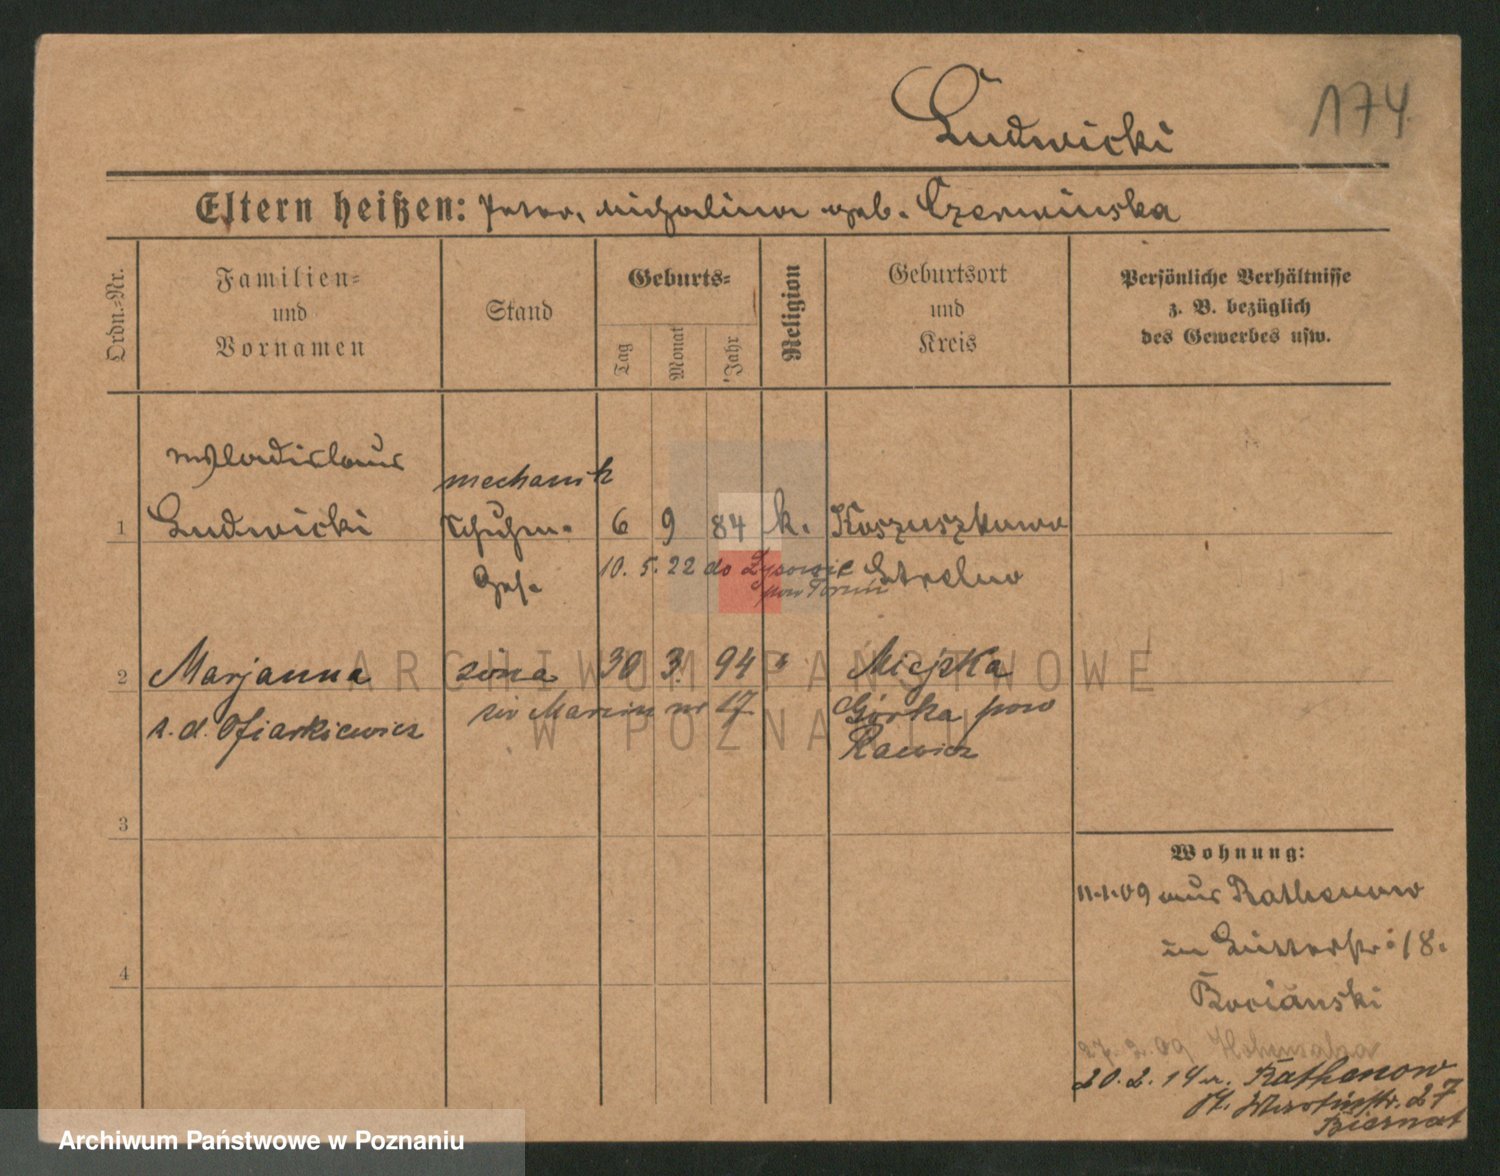 174.
Ludwicki
Eltern heißen: Peter, Michalina geb. Czerwinska
Ordn.-Nr.
Familien-
und
Vornamen
Stand
Geburts-
Tag
Monat
Jahr
Religion
Geburtsort
und
Kreis
Persönliche Verhältnisse
z. B. bezüglich
des Gewerbes usw.
Wladislaus
mechanik
1 Ludwicki 6 9 84 k. Koszuszkowo
10. 5. 22 do
pow Toruń
Strelno
2 Marjanna żona 30 3. 94 " Miejska
św Marcin nr 17
Górka pow
z. d. Ofiarkiewicz
Rawicz
3
4
Wohnung:
11.1.09 aus Rathenow
in 18.
Kocianski
27.2.09 Hohensalza
20.2.14 v. Rathenow
St. Martinstr. 27
Biernat
ARCHIWUM PAŃSTWOWE
W POZNANIU
Archiwum Państwowe w Poznaniu